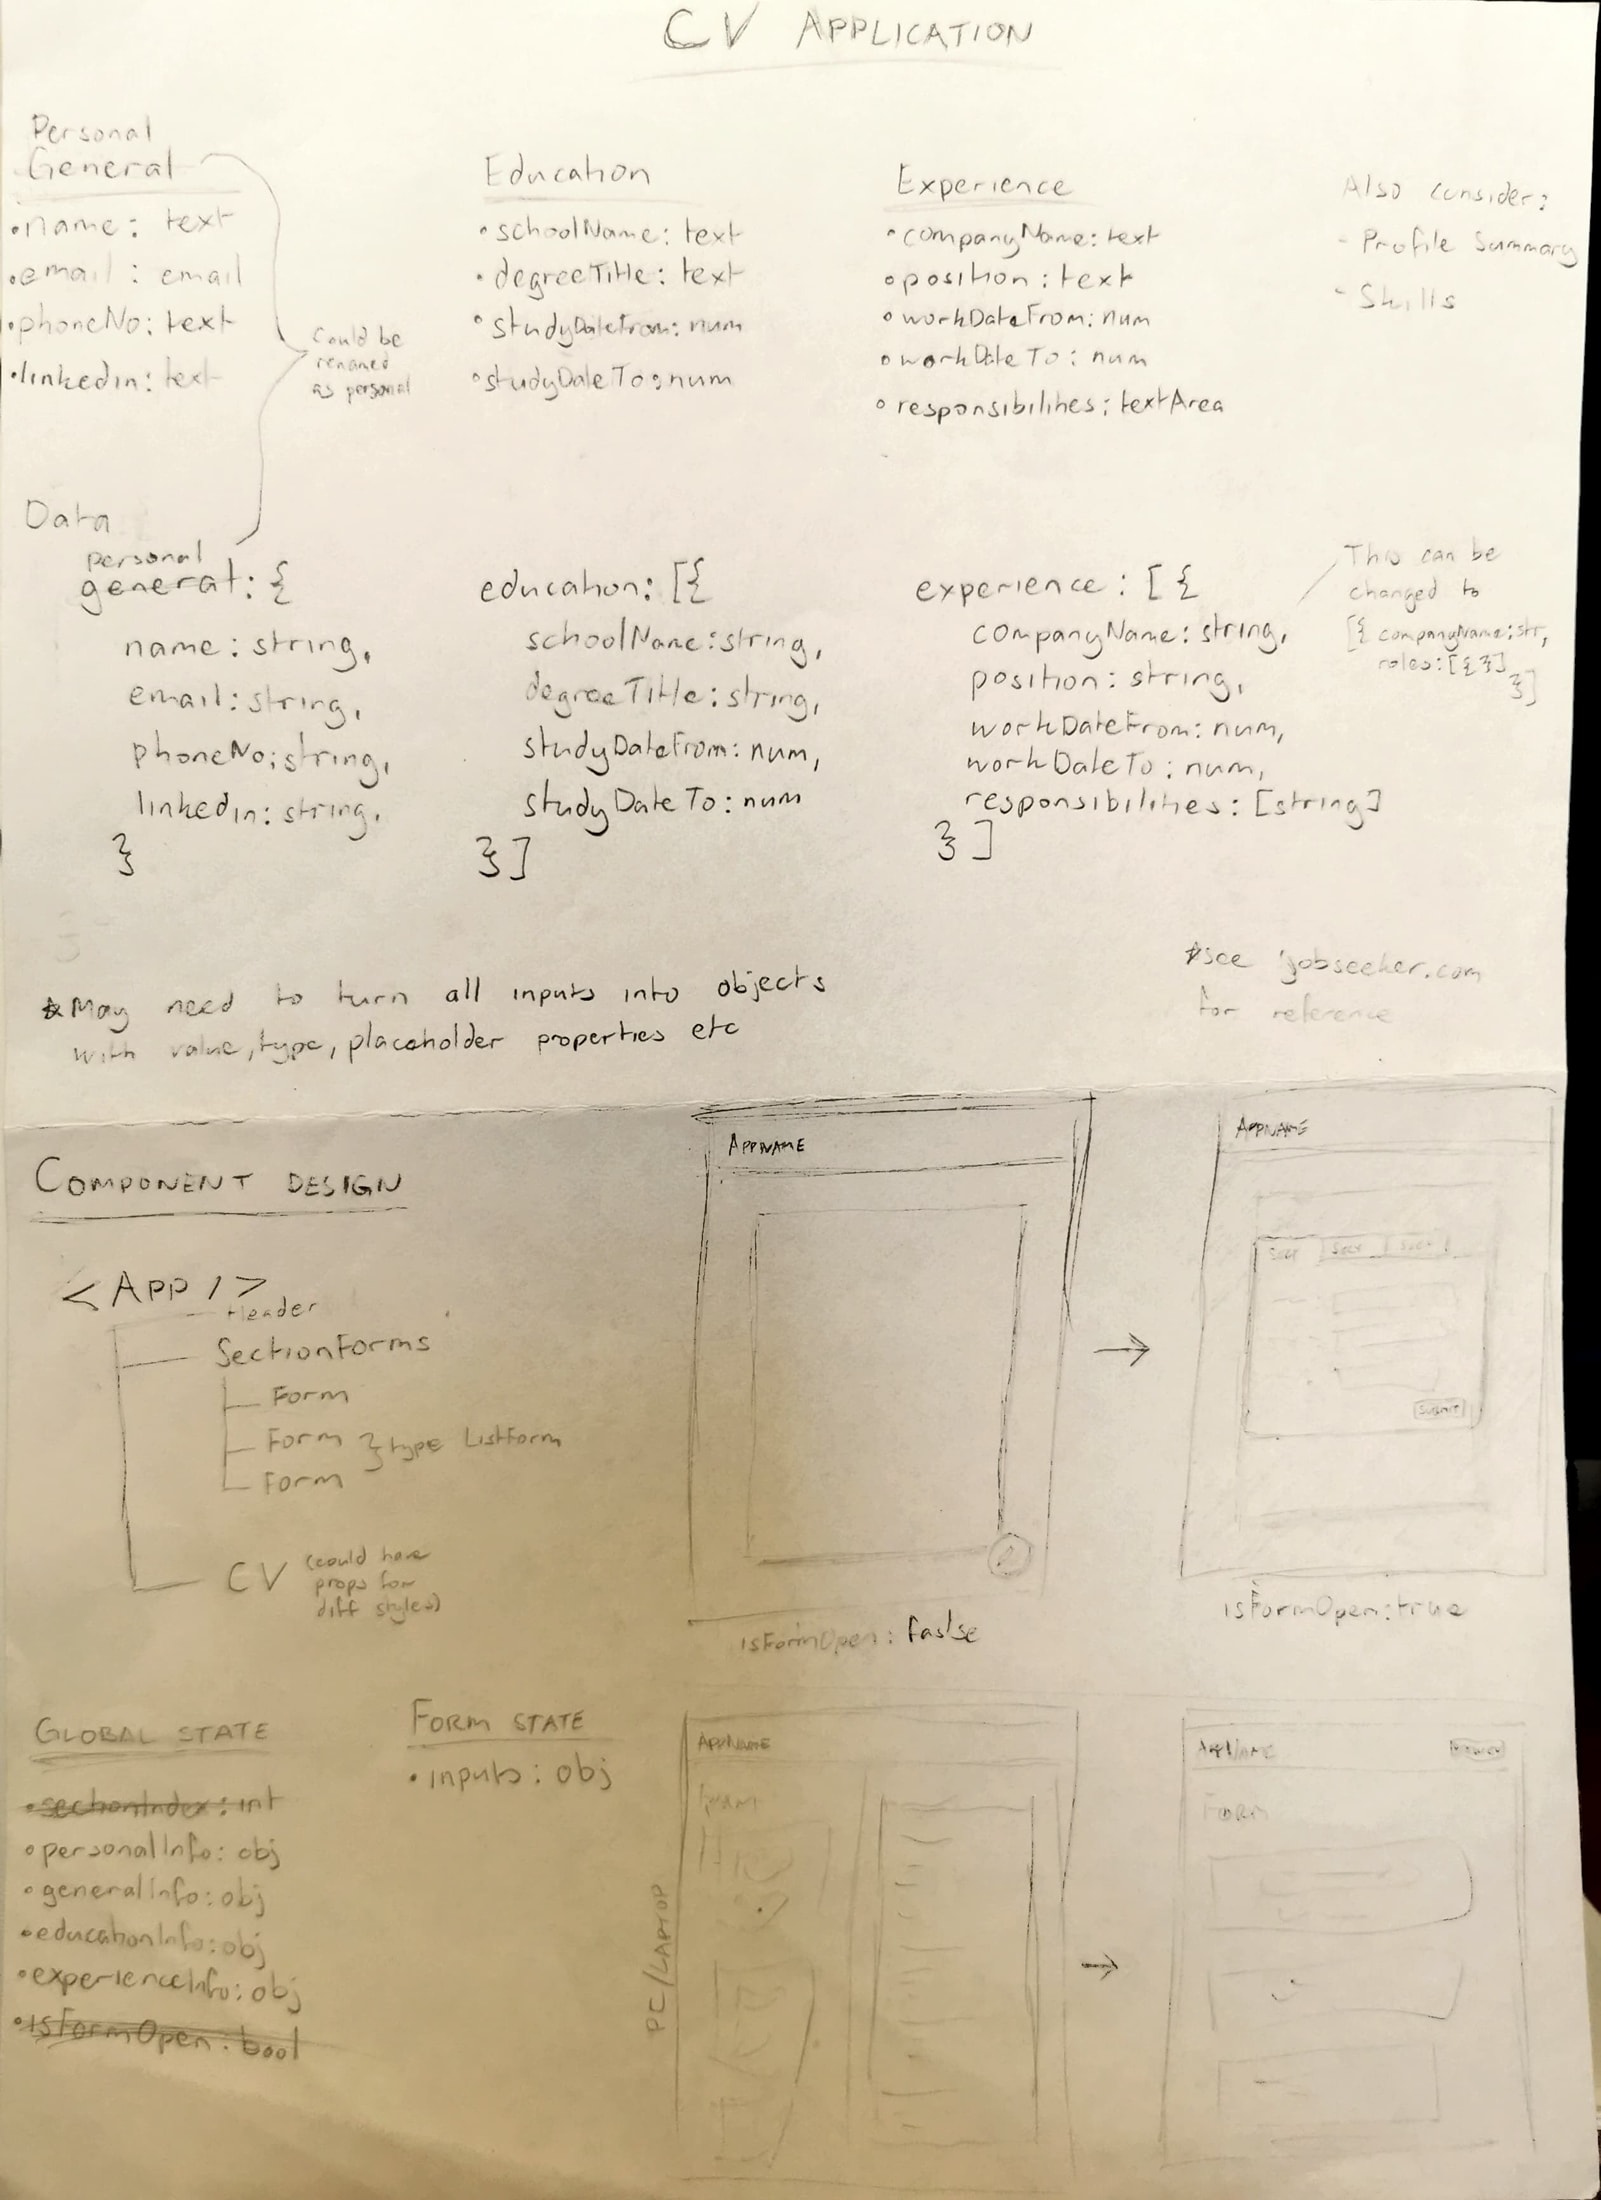 CV APPLICATION
Personal
General
• name: text
• email: email
• phoneNo: text
• linkedin: text
Could be
renamed
as personal
Education
• schoolName: text
• degreeTitle: text
• studyDateFrom: num
• studyDateTo: num
Experience
• companyName: text
• position: text
• workDateFrom: num
• workDateTo: num
• responsibilities: textArea
Also consider:
- Profile Summary
- Skills
Data
personal
general: {
name: string,
email: string,
phoneNo: string,
linkedin: string,
}
education: [{
schoolName: string,
degreeTitle: string,
studyDateFrom: num,
studyDateTo: num
}]
experience: [{
companyName: string,
position: string,
workDateFrom: num,
workDateTo: num,
responsibilities: [string]
}]
This can be
changed to
[{ companyName: str,
roles: [{}]
}]
* May need to turn all inputs into objects
with value, type, placeholder properties etc
* see jobseeker.com
for reference
COMPONENT DESIGN
<APP />
Header
SectionForms
Form
Form } type ListForm
Form
CV (could have
props for
diff styles)
APPNAME
isFormOpen: false
APPNAME
Sect Sect Sect
Submit
isFormOpen: true
GLOBAL STATE
• sectionIndex: int
• personalInfo: obj
• generalInfo: obj
• educationInfo: obj
• experienceInfo: obj
• isFormOpen: bool
FORM STATE
• inputs: obj
PC/LAPTOP
APPNAME
Form
APPNAME
FORM